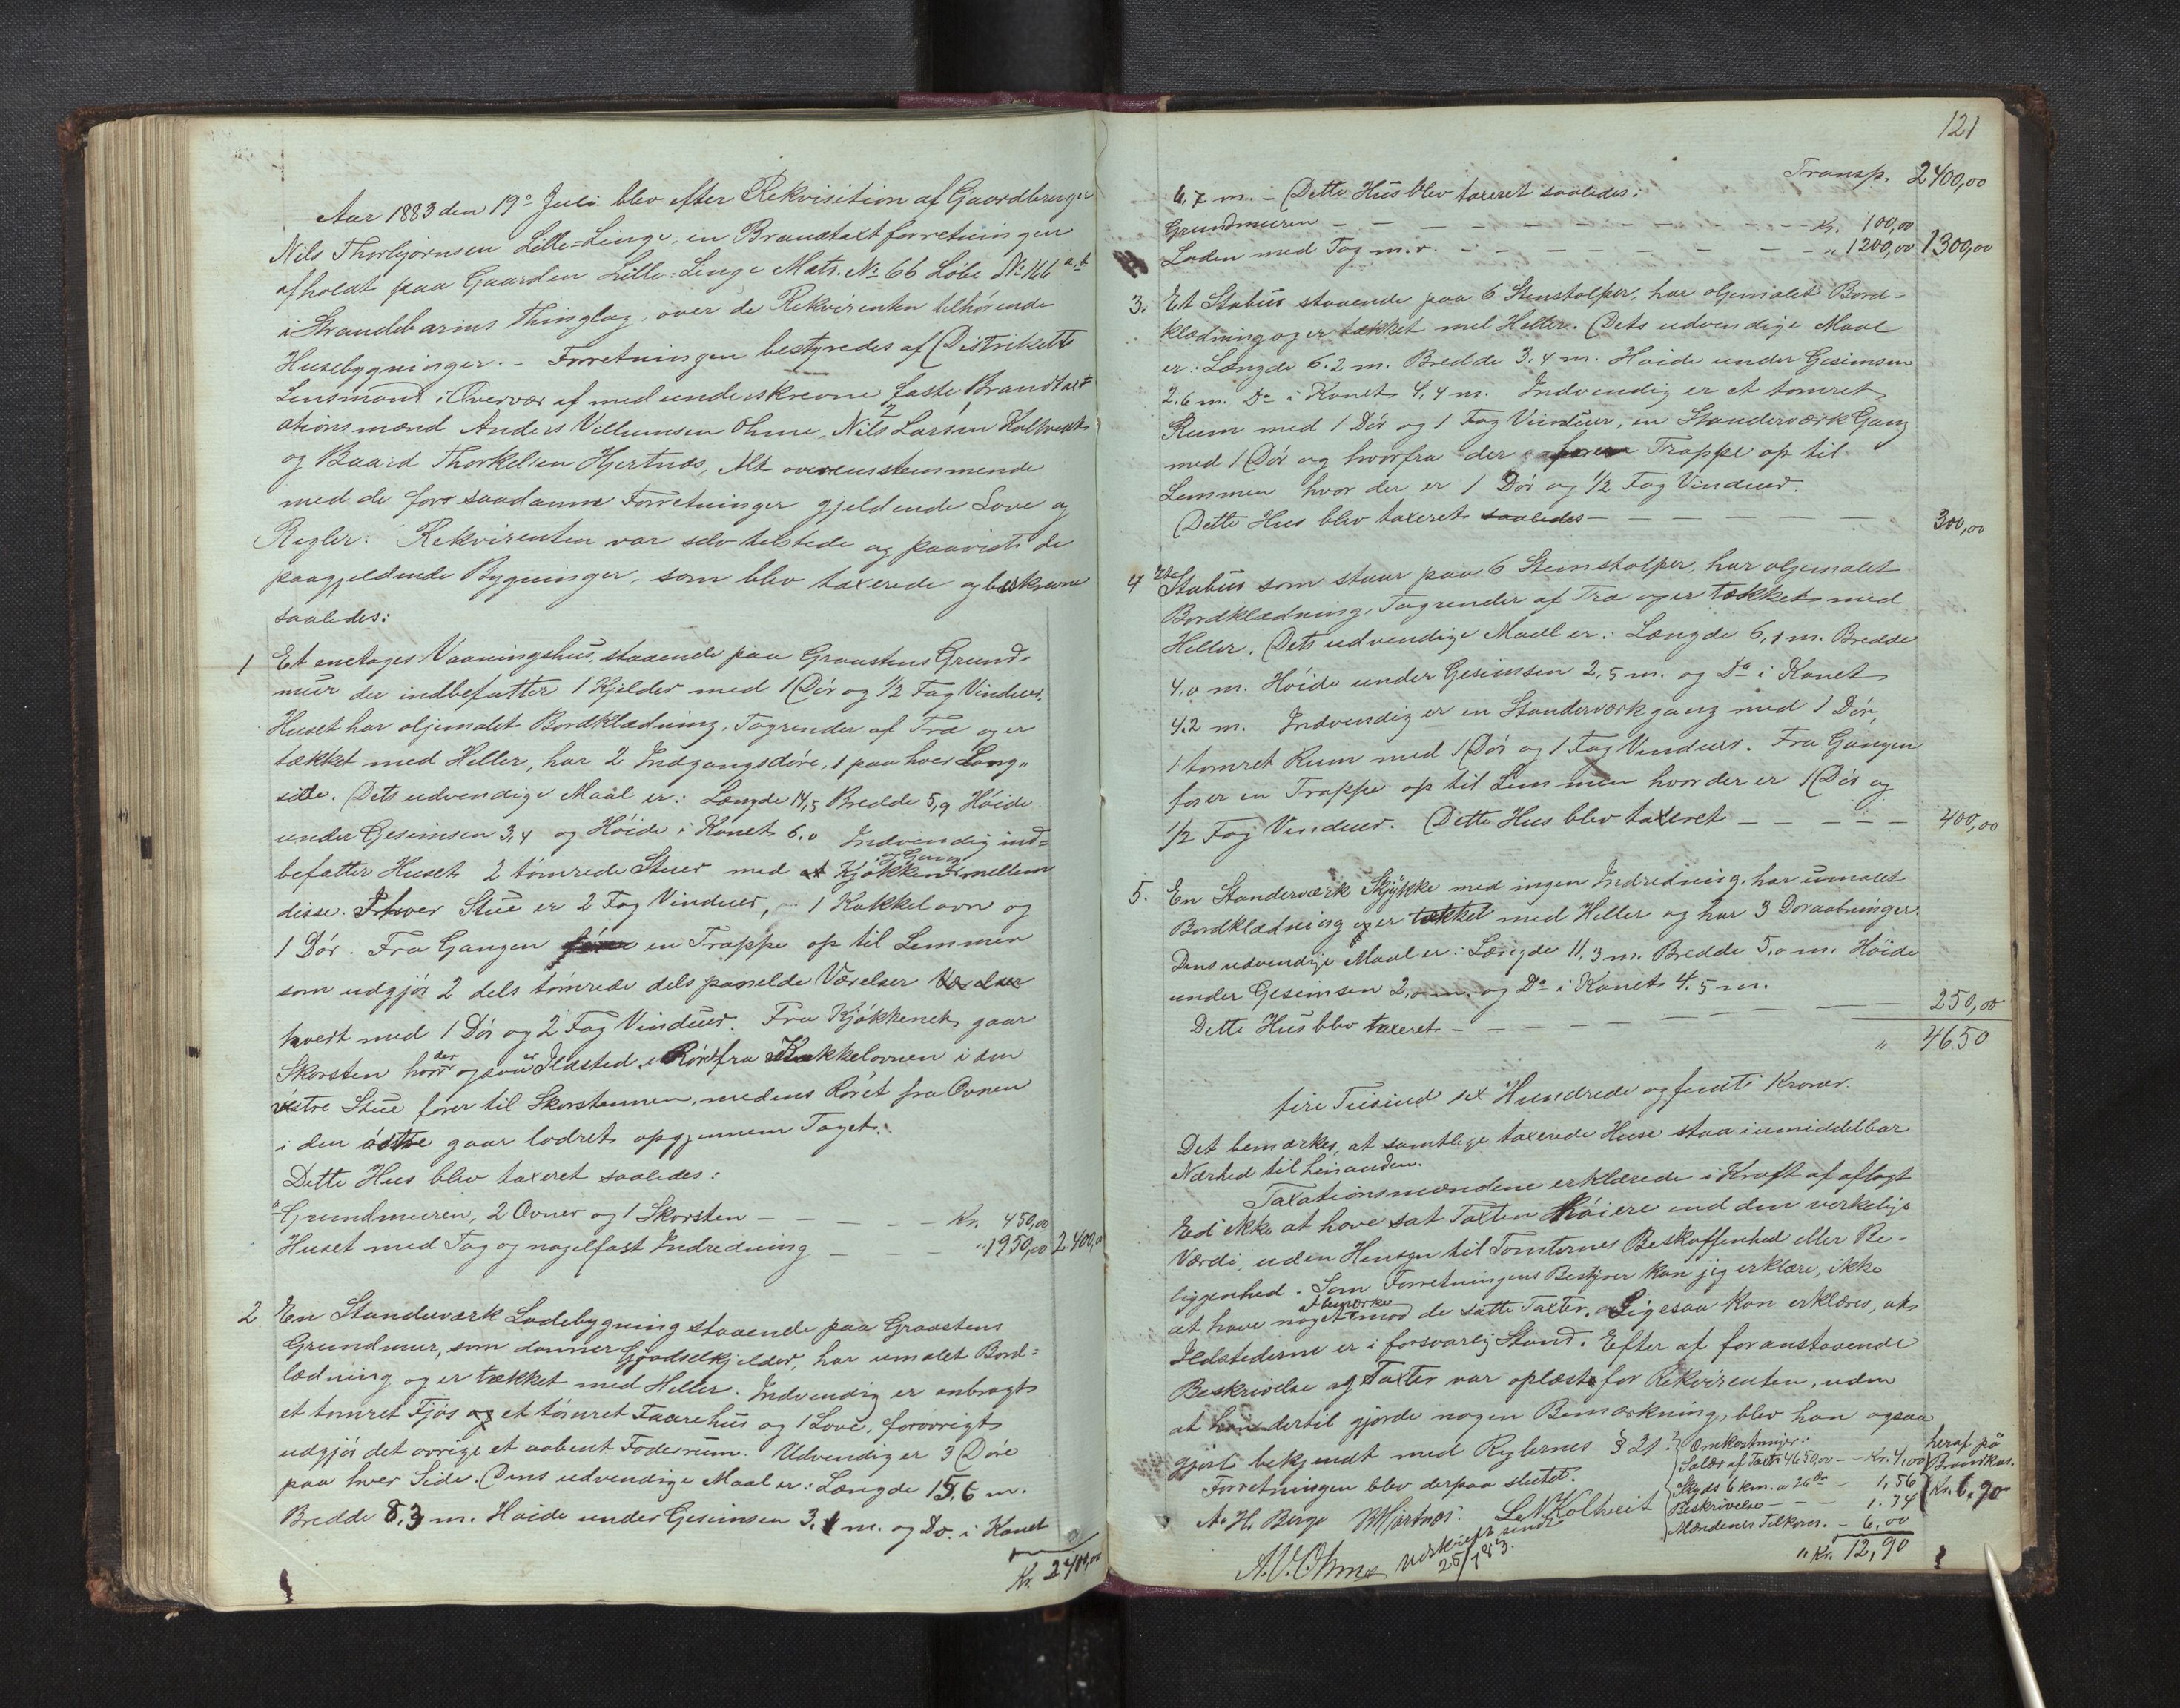 Aar 1883 den 19de Juli blev efter Rekvisition af Gaardbruger
Nils Thorbjørnsen Lille-Linge, en Brandtaxtforretningen
afholdt paa Gaarden Lille-Linge Matr. No 66 Løbe No 166 a, b
i Strandebarms Thinglag, over de Rekvirenten tilhørende
Husebygninger. – Forretningen bestyredes af Distriktets
Lensmand i Overvær af medunderskrevne faste Brandtaxt
ationsmænd Anders Villumsen Ohme, Nils Larsen Kolltveit
og Baard Thorkelsen Hjertnæs, Alt overensstemmende
med de for saadanne Forretninger gjeldende Love og
Regler. Rekvirenten var selv tilstede og paaviste de
paagjeldende Bygninger, som blev taxerede og beskrevne
saaledes:
1 Et enetages Vaaningshus, staaende paa Graastens Grund-
mur der indbefatter 1 Kjelder med 1 Dør og 1/2 Fag Vinduer.
Huset har oljemalet Bordklædning, Tagrender af Træ og er
tækket med Heller, har 2 Indgangsdøre, 1 paa hver Lang-
side. Dets udvendige Maal er: Længde 14,5 Bredde 5,9 Høide
under Gesimsen 3,4 og Høide i Kanet 6,0 Indvendig ind-
befatter Huset 2 tømrede Stuer med et Kjøkken og Gang mellem
disse. I hver Stue er 2 Fag Vinduer, 1 Kakkelovn og
1 Dør. Fra Gangen fører en Trappe op til Lemmen
som udgjør 2 dels tømrede dels panelde Værelser Værelser
hvert med 1 Dør og 2 Fag Vinduer. Fra Kjøkkenet gaar
Skorsten hvor der ogsaa er Ildsted. Røret fra Kakkelovnen i den
vestre Stue fører til Skorstenen, medens Røret fra Ovnen
i den østre gaar lodret opgjennem Taget.
Dette Hus blev taxeret saaledes:
Grundmuren, 2 Ovner og 1 Skorsten – – – – – Kr. 450,00
Huset med Tag og nagelfast Indredning – – – " 1950,00 2400,00
2 En Standeværk Ladebygning staaende paa Graastens
Grundmur, som danner Gjødselkjelder, har umalet Bord=
lædning og er tækket med Heller. Indvendig er anbragt
et tømret Fjøs og et tømret Faarehus og 1 Løve, forøvrigt
udgjør det øvrige et aabent Foderrum. Udvendig er 3 Døre
paa hver Side. Dens udvendige Maal er: Længde 15,6 m.
Bredde 8,3 m. Høide under Gesimsen 3,1 m. og Do. i Kanet
Kr. 2400,00
121
Transp. 2400,00
6,7 m. – Dette Hus blev taxeret saaledes:
Grundmuren – – – – – – – – – Kr. 100,00
Laden med Tag m.v. – – – – – – – " 1200,00 1300,00
3. Et Stabur staaende paa 6 Stenstolper, har oljemalet Bord-
klædning og er tækket med Heller. Dets udvendige Maal
er: Længde 6.2 m. Bredde 3,4 m. Høide under Gesimsen
2,6 m. Do i Kanet 4,4 m. Indvendig er et tømret
Rum med 1 Dør og 1 Fag Vinduer, en Standerværk Gang
med 1 Dør og hvorfra der fører Trappe op til
Lemmen hvor der er 1 Dør og 1/2 Fag Vinduer.
Dette Hus blev taxeret saaledes – – – – – – 300,00
4 Stabur som staar paa 6 Stenstolper, har oljemalet
Bordklædning, Tagrender af Træ og er tækket med
Heller. Dets udvendige Maal er: Længde 6,1 m. Bredde
4,0 m. Høide under Gesimsen 2,5 m. og Do i Kanet
4.2 m. Indvendig er en Standerværkgang med 1 Dør,
1 tømret Rum med 1 Dør og 1 Fag Vinduer. Fra Gangen
fører en Trappe op til Lemmen hvor der er 1 Dør og
1/2 Fag Vinduer. Dette Hus blev taxeret – – – – – 400,00
5. En Standerværk Skykke med ingen Indredning, har umalet
Bordklædning og er tækket med Heller og har 3 Døraabninger.
Dens udvendige Maal er: Længde 11,3 m. Bredde 5,0 m. Høide
under Gesimsen 2,0 m. og Do i Kanet 4,5 m.
Dette Hus blev taxeret – – – – – – – – 250,00
" 4650
fire Tusind sex Hundrede og femti Kroner.
Det bemærkes, at samtlige taxerede Huse staa i umiddelbar
Nærhed til hinanden.
Taxationsmændene erklærede i Kraft af aflagt
Ed ikke at have sat Taxten høiere end den virkelige
Værdi, uden Hensyn til Tomternes Beskaffenhed eller Be-
liggenhed. Som Forretningens Bestyrer kan jeg erklære, ikke
at have noget at bemærke mod de satte Taxter. Ligesaa kan erklæres, at
Ildstederne er i forsvarlig Stand. Efter af foranstaaende
Beskrivelse og Taxter var oplæst for Rekvirenten, uden
at han dertil gjorde nogen Bemærkning, blev han ogsaa
gjort bekjendt med Reglernes § 21.
Forretningen blev derpaa sluttet.
A. H. Berge BHjertnæs. L. N Kolltveit
A. V. Ohme Udskrift sendt
25/7 83.
Omkostninger:
Salær af Taxt 4650,00 – – Kr. 4,00
Skyds 6 km. a 26 Øre – 1,56
Beskrivelse – – – 1.34
Mændenes Tilkom. – 6,00
" Kr. 12,90
heraf på
Brandkas.
Kr. 6.90